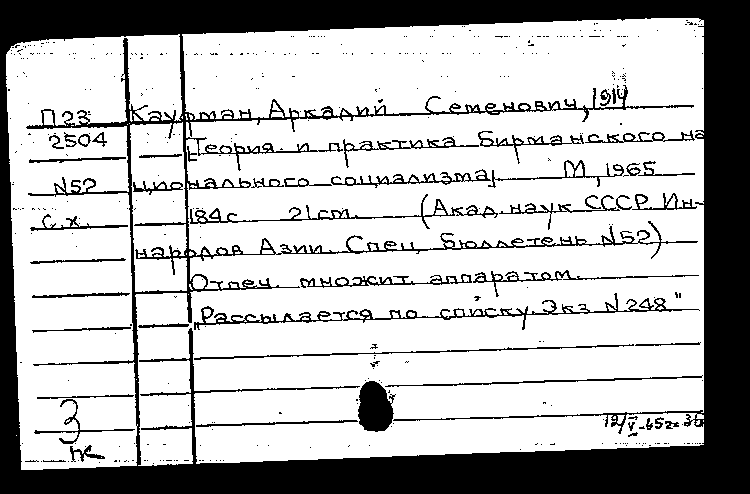 П23 Кауфман, Аркадий Семенович, 1914
2504 Теория и практика бирманского на
N52 ционального социализма. М, 1965
с.х. 184с 21см. (Акад. наук СССР. Ин-
народов Азии. Спец. Бюллетень N52)
Отпеч. множит. аппаратом.
"Рассылается по списку. Экз N248"
3
12/V-65г.